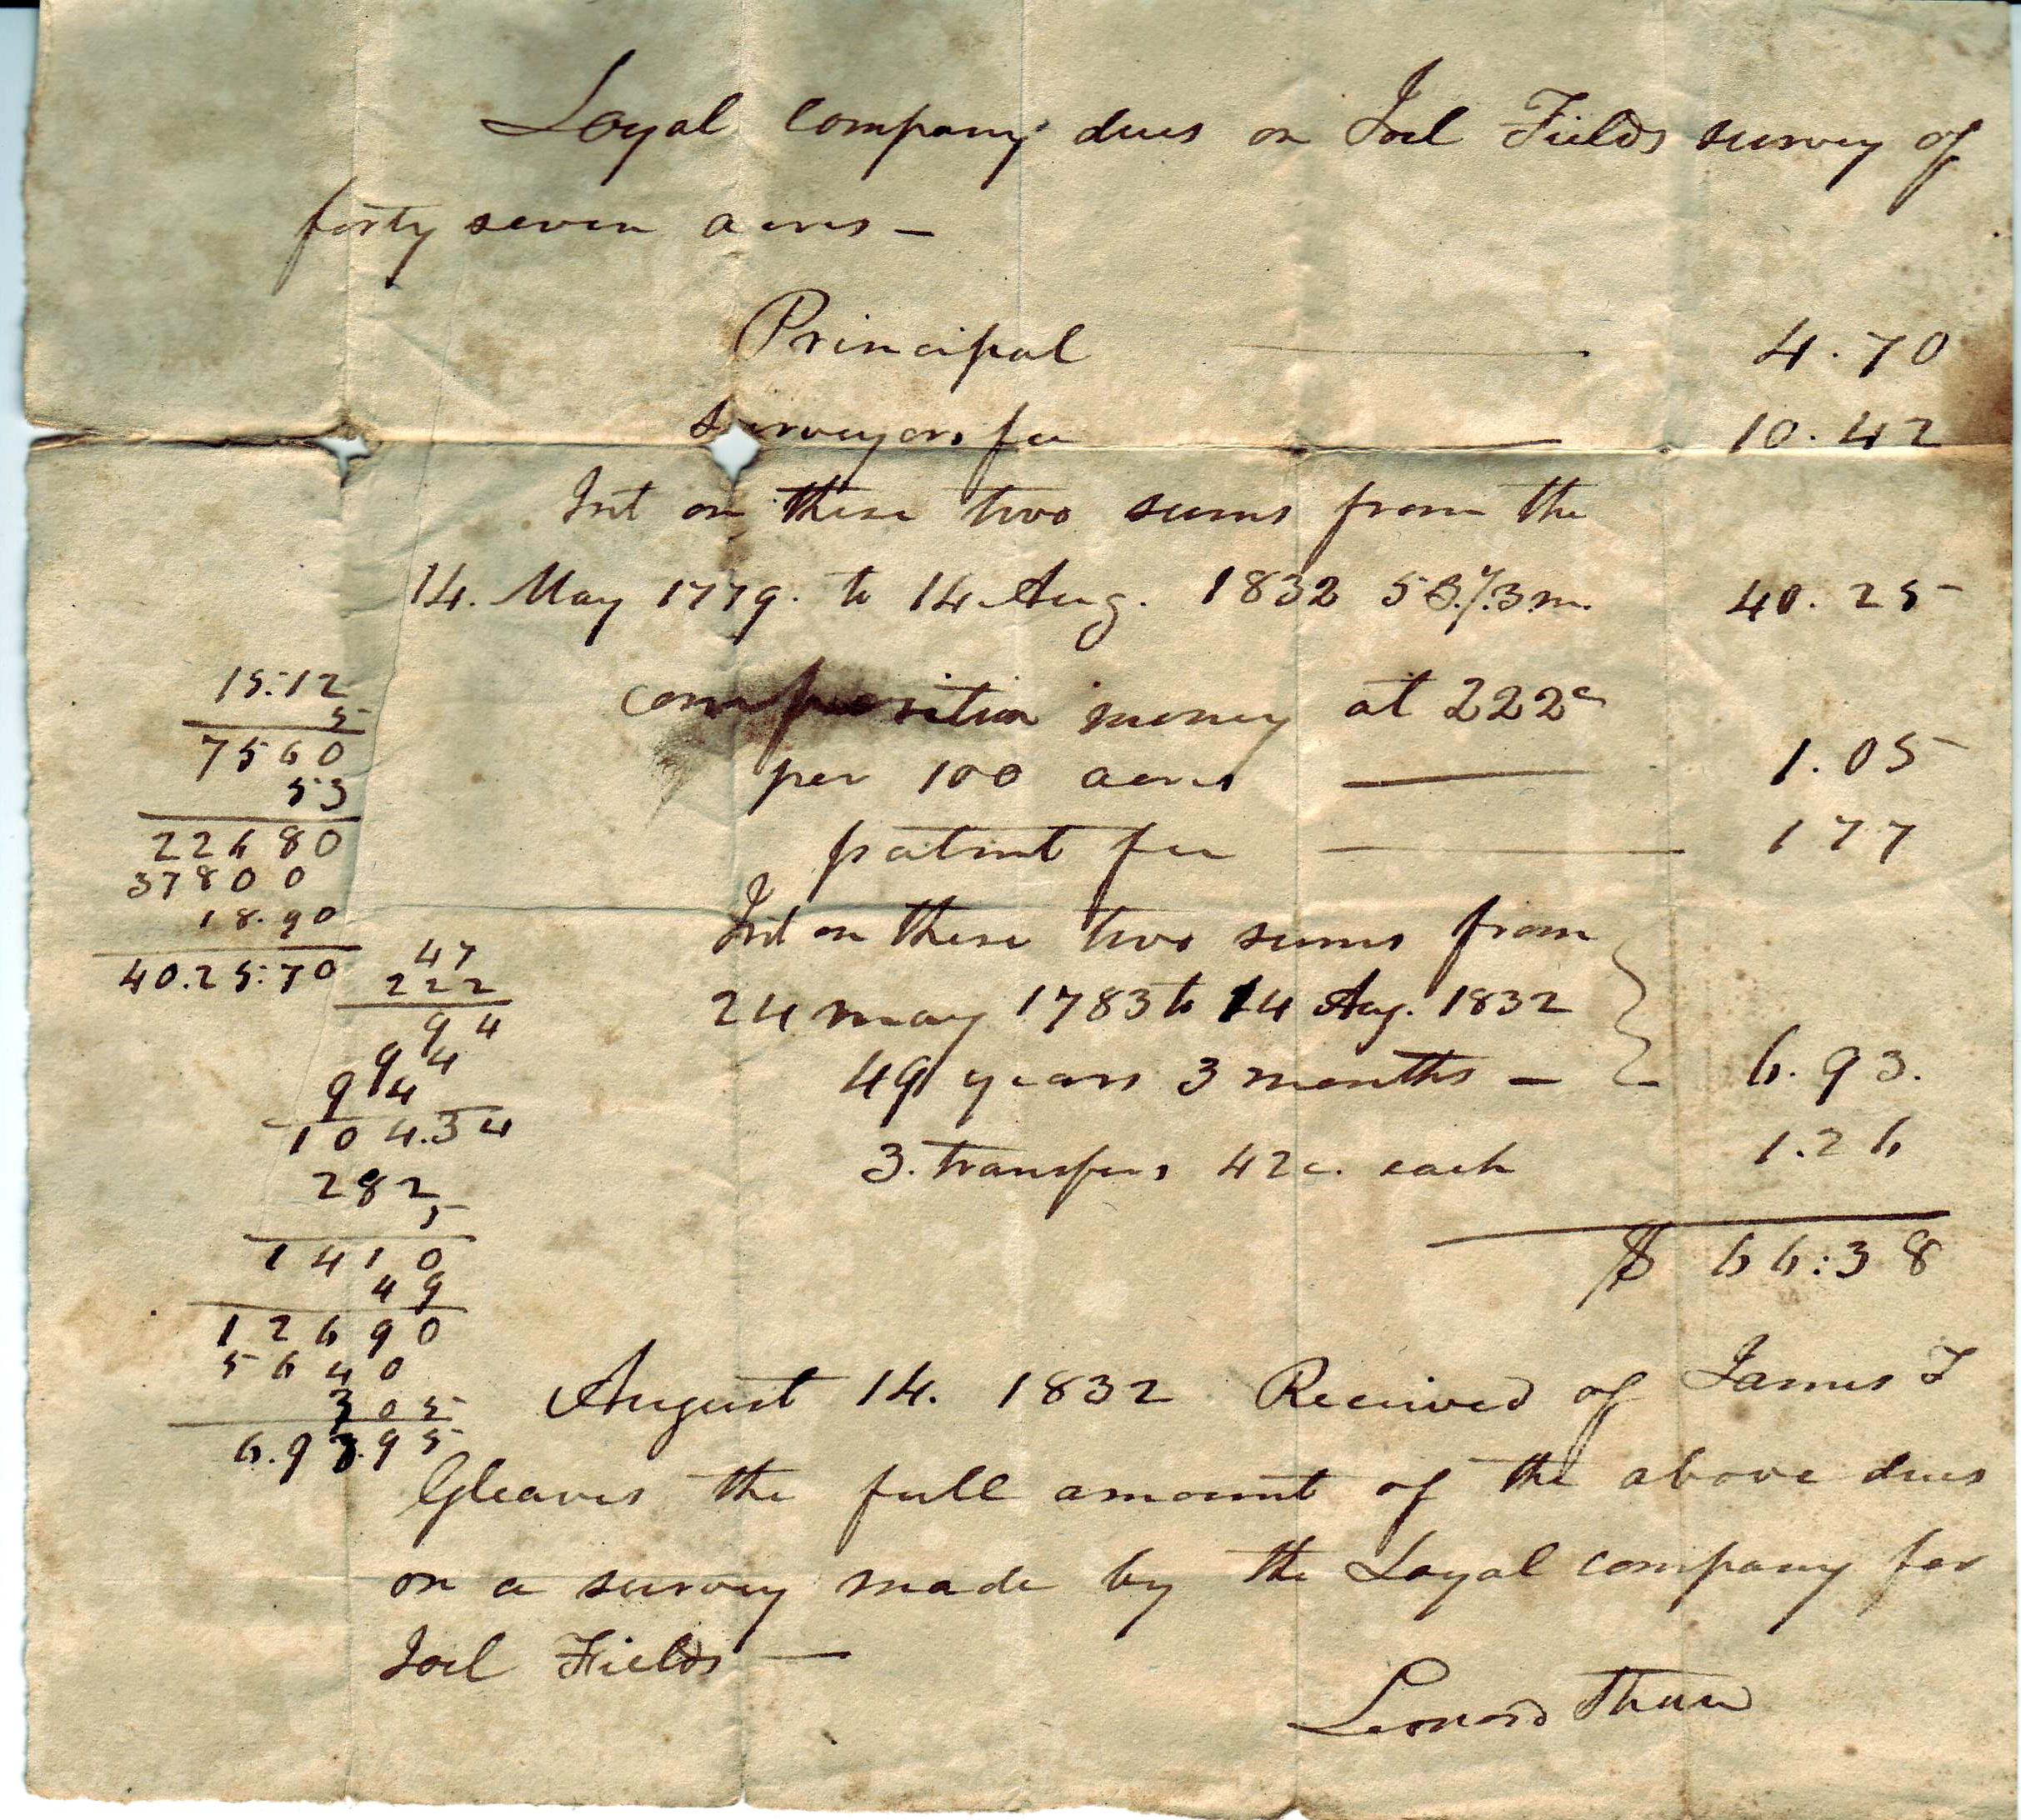 Loyal Company dues on Joel Fields survey of
forty seven acres —
Principal 4.70
Surveyors fee 10.42
Int on these two sums from the
14. May 1779. to 14 Aug. 1832 53.y.3.m. 40.25
composition money at 222c
per 100 acres 1.05
patent fee 177
Int on these two sums from
24 may 1783 to 14 Aug. 1832
49 years 3 months — 6.93.
3. transfers 42c. each 1.26
$ 66:38
15.12
5
7560
53
22680
37800
18.90
40.25.70
47
222
94
94
94
104.34
282
5
1410
49
12690
5640
305
6.93.95
August 14. 1832 Received of James T
Gleaves the full amount of the above dues
on a survey made by the Loyal company for
Joel Fields —
Leonard